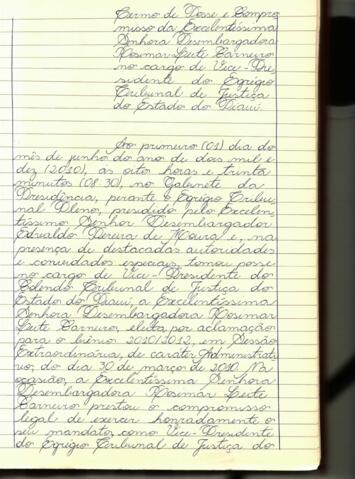 Termo de Posse e Compro-
misso da Excelentíssima
Senhora Desembargadora
Rosimar Leite Carneiro
no cargo de Vice-Pre-
sidente do Egrégio
Tribunal de Justiça
do Estado do Piauí.
Ao primeiro (01) dia do
mês de junho do ano de dois mil e
dez (2010), às oito horas e trinta
minutos (08:30), no Gabinete da
Presidência, perante o Egrégio Tribu-
nal Pleno, presidido pelo Excelen-
tíssimo Senhor Desembargador
Edvaldo Pereira de Moura e, na
presença de destacadas autoridades
e convidados especiais, tomou posse
no cargo de Vice-Presidente do
Colendo Tribunal de Justiça do
Estado do Piauí, a Excelentíssima
Senhora Desembargadora Rosimar
Leite Carneiro, eleita por aclamação
para o biênio 2010/2012, em Sessão
Extraordinária, de caráter Administrati-
vo, do dia 30 de março de 2010. Na
ocasião, a Excelentíssima Senhora
Desembargadora Rosimar Leite
Carneiro prestou o compromisso
legal de exercer honradamente o
seu mandato como Vice-Presidente
do Egrégio Tribunal de Justiça do